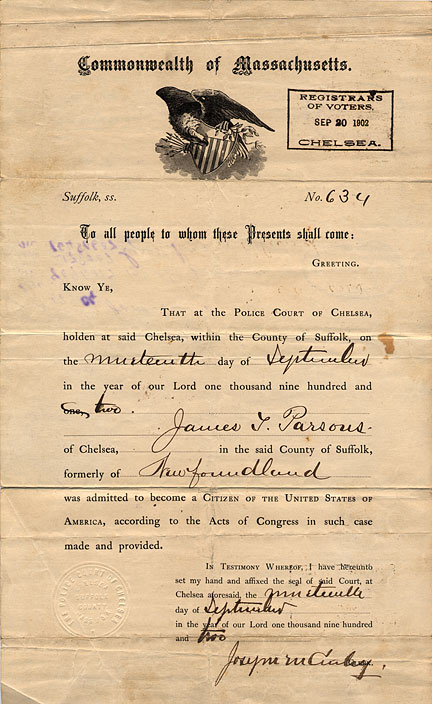 Commonwealth of Massachusetts.
REGISTRARS
OF VOTERS.
SEP 20 1902
CHELSEA.
Suffolk, ss.
No. 634
To all people to whom these Presents shall come:
GREETING.
KNOW YE,
THAT at the POLICE COURT OF CHELSEA,
holden at said Chelsea, within the County of Suffolk, on
the nineteenth day of September
in the year of our Lord one thousand nine hundred and
one, two.
James T. Parsons
of Chelsea, in the said County of Suffolk,
formerly of Newfoundland
was admitted to become a CITIZEN OF THE UNITED STATES OF
AMERICA, according to the Acts of Congress in such case
made and provided.
IN TESTIMONY WHEREOF, I have hereunto
set my hand and affixed the seal of said Court, at
Chelsea aforesaid, the nineteenth
day of September
in the year of our Lord one thousand nine hundred
and two
Joseph